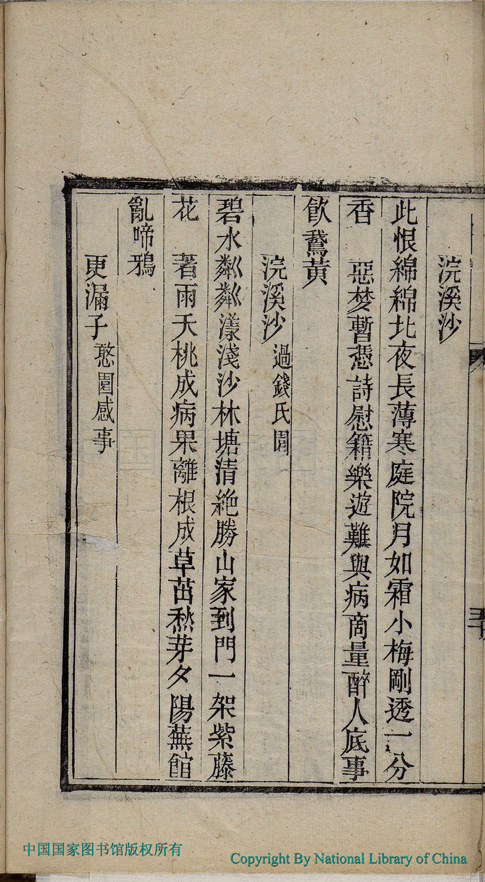 浣溪沙
此恨綿綿北夜長薄寒庭院月如霜小梅剛透一分
香　惡梦暫憑詩慰籍樂遊難與病商量醉人底事
飲鵞黃
浣溪沙 過錢氏園
碧水粼粼漾淺沙林塘清絶勝山家到門一架紫藤
花　著雨夭桃成病果離根成草茁愁芽夕陽蕪館
亂啼鴉
更漏子 憨園感事
中国国家图书馆版权所有
Copyright By National Library of China